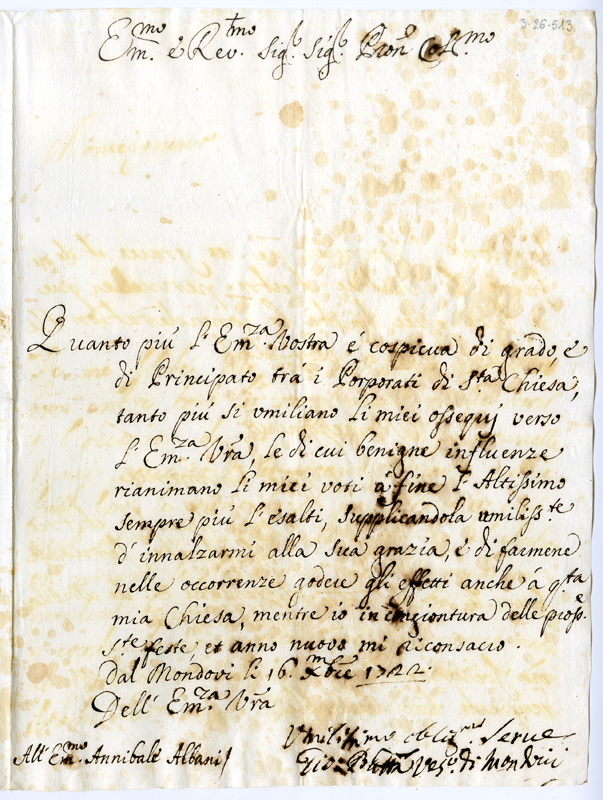 3-26-513
Em.mo e Rev.mo Sig.r Sig.r Pron Col.mo
Quanto più l'Em.za Vostra é cospicua di grado, é
di Principato trá i Porporati di S.ta Chiesa,
tanto più si umiliano li miei ossequj verso
l'Em.za Vra, le di cui benigne influenze
rianimano li miei voti á fine l'Altissimo
sempre più l'esalti, supplicandola umiliss.te
d'innalzarmi alla sua grazia, é di farmene
nelle occorrenze godere gli effetti anche á q.ta
mia Chiesa, mentre io in congiontura delle pross.e
S.te feste, et anno nuovo mi riconsacro.
Dal Mondovi li 16. Xm.bre 1722.
Dell'Em.za Vra
Umilissimo oblig.mo Serve
All'Em.mo Annibale Albani
Gio: Batta Ves.o di Mondovi